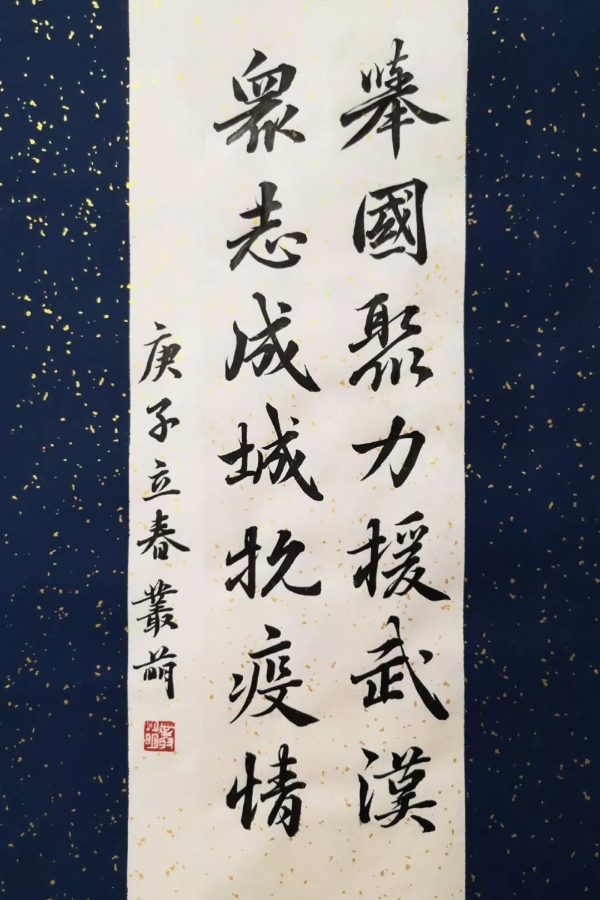 舉國聚力援武漢
衆志成城抗疫情
庚子立春叢萌